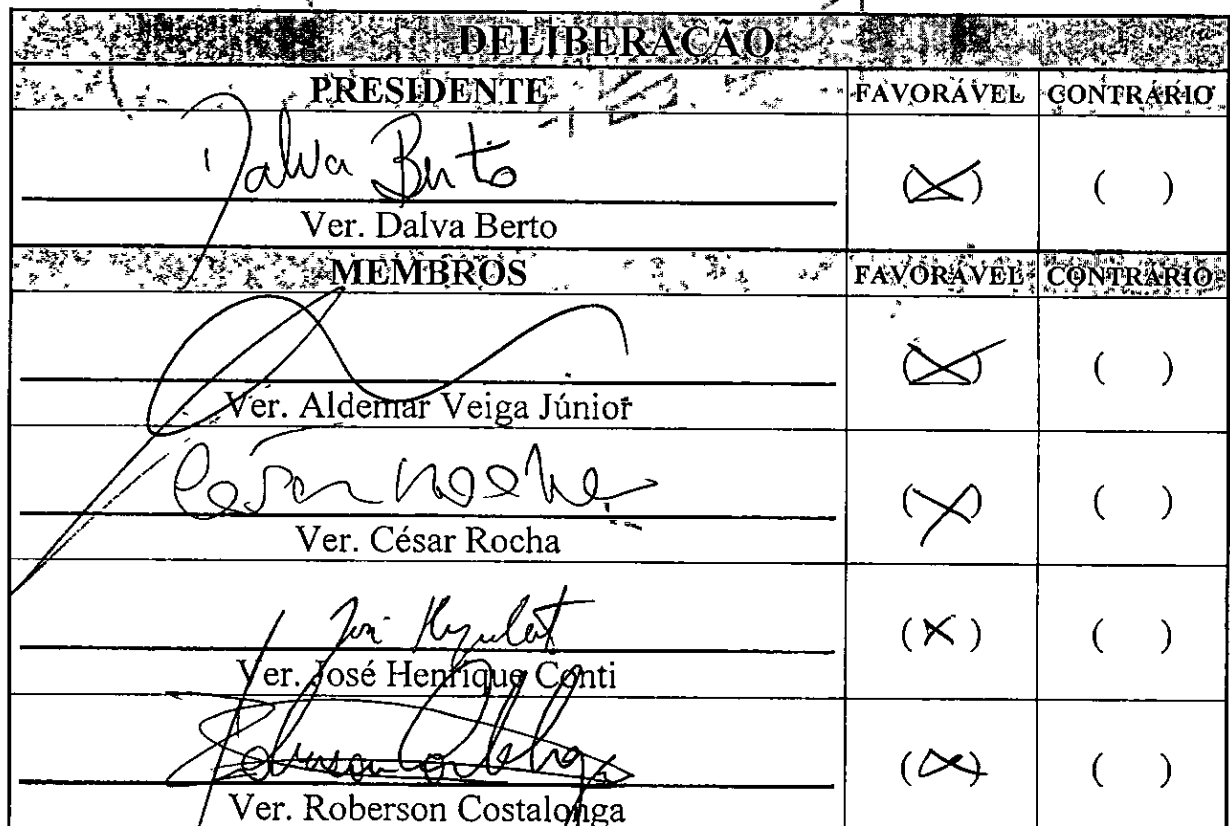 DELIBERAÇÃO
PRESIDENTE FAVORÁVEL CONTRÁRIO
Dalva Berto (X) ( )
Ver. Dalva Berto
MEMBROS FAVORÁVEL CONTRÁRIO
(X) ( )
Ver. Aldemar Veiga Júnior
César Rocha (X) ( )
Ver. César Rocha
José (X) ( )
Ver. José Henrique Conti
(X) ( )
Ver. Roberson Costalonga